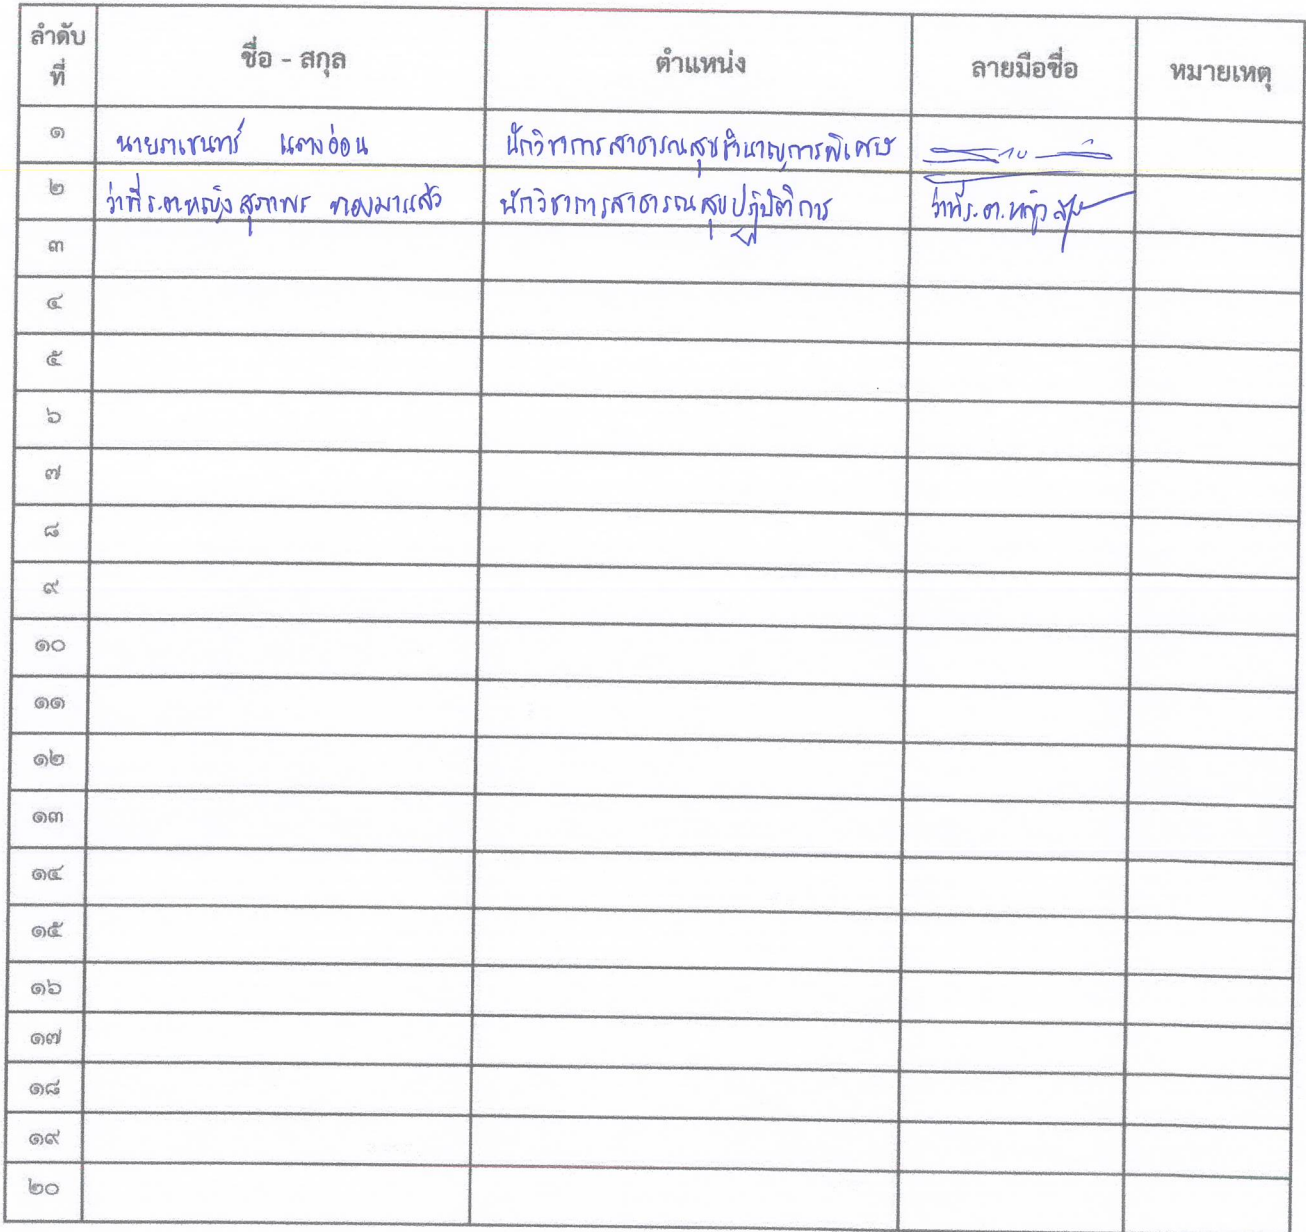 ลำดับ
ที่
ชื่อ - สกุล
ตำแหน่ง
ลายมือชื่อ
หมายเหตุ
๑ นายราเชนทร์ แตงอ่อน นักวิชาการสาธารณสุขชำนาญการพิเศษ
๒ ว่าที่ ร.ต.หญิง สุภาพร ทองมาแล้ว นักวิชาการสาธารณสุขปฏิบัติการ ว่าที่ ร.ต.หญิง
๓
๔
๕
๖
๗
๘
๙
๑๐
๑๑
๑๒
๑๓
๑๔
๑๕
๑๖
๑๗
๑๘
๑๙
๒๐